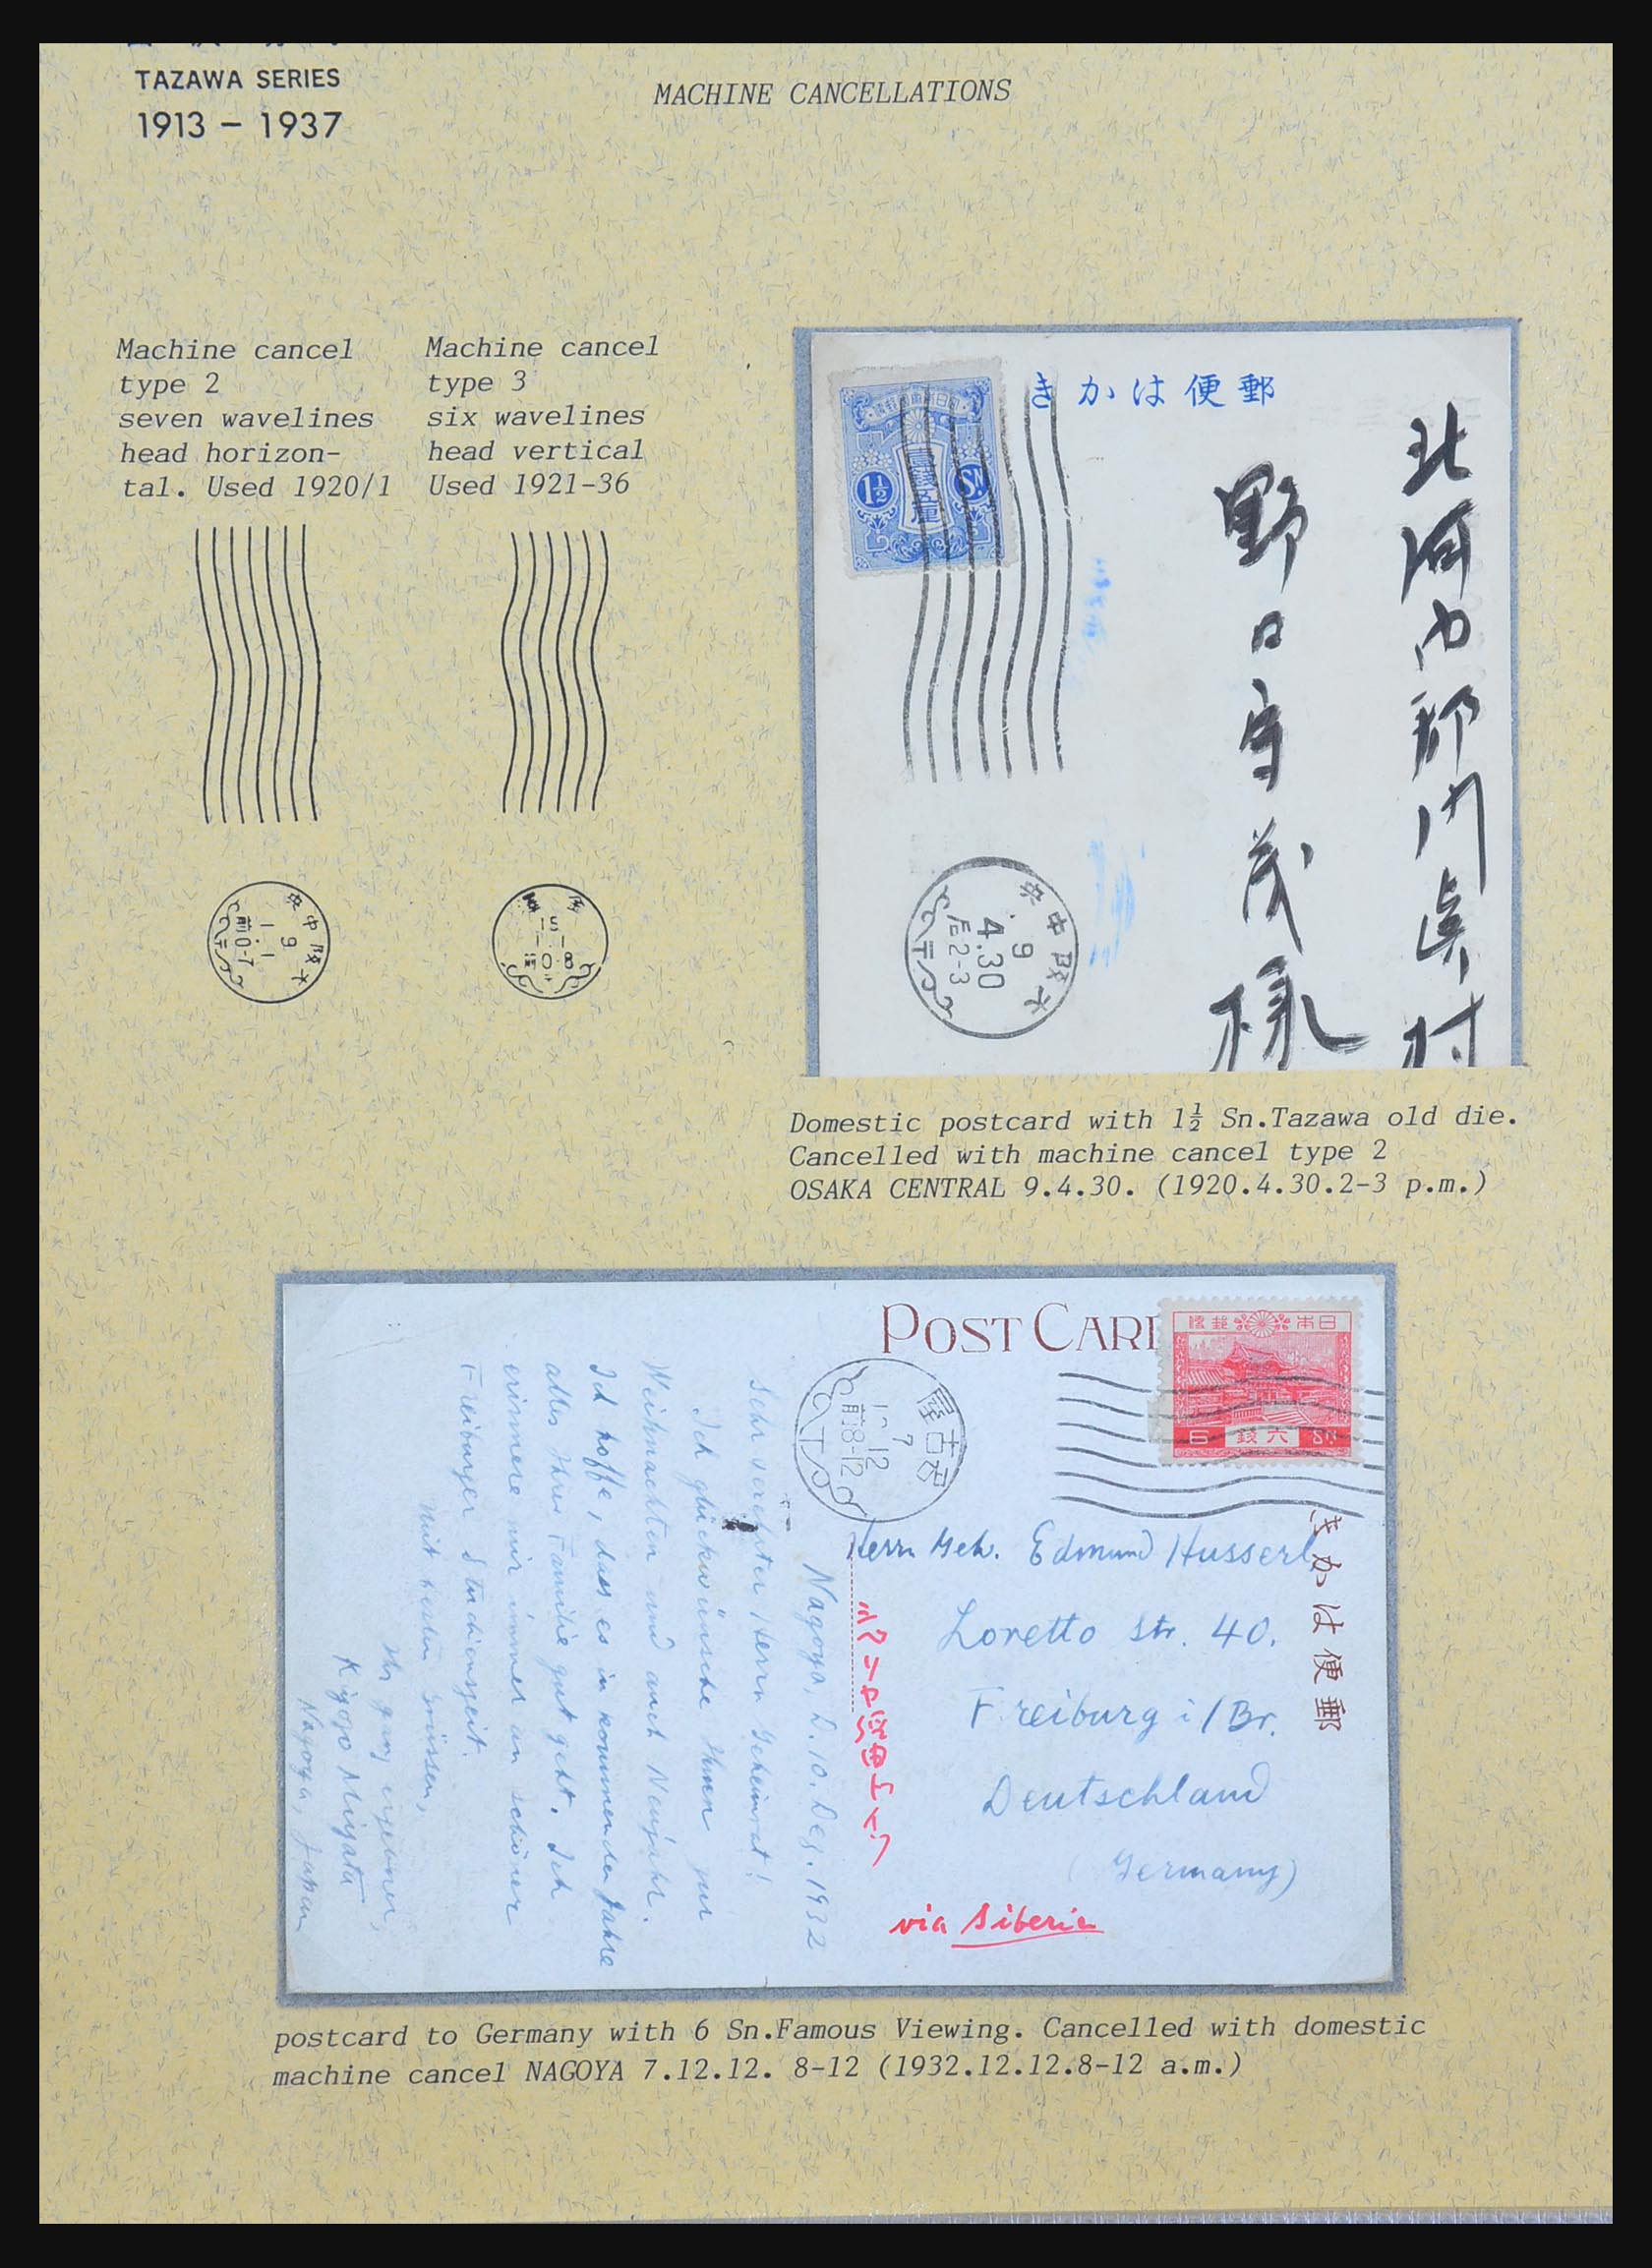 TAZAWA SERIES
1913 – 1937
MACHINE CANCELLATIONS
Machine cancel
type 2
seven wavelines
head horizon-
tal. Used 1920/1
Machine cancel
type 3
six wavelines
head vertical
Used 1921-36
大阪中央
9
1.1
前0-7
15
1.1
前0-8
きかは便郵
1½
Sn
北河内郡門真村
野口守茂様
大阪中央
9
4.30
后2-3
Domestic postcard with 1½ Sn.Tazawa old die.
Cancelled with machine cancel type 2
OSAKA CENTRAL 9.4.30. (1920.4.30.2-3 p.m.)
POST CARD
日本
便郵
日 錢六 Sn
名古屋
7
12.12
前8-12
きかは便郵
Herrn Geh. Edmund Husserl
Loretto Str. 40.
Freiburg i/Br.
Deutschland
(Germany)
via Siberia
Nagoya, d. 10. Dez. 1932
Sehr verehrter Herrn Geheimrat!
Ich glückwünsche Ihnen zur
Weihnachten und auch Neujahr.
Ich hoffe, dass es in kommenden Jahre
alles Ihrer Familie gut geht. Ich
erinnere mir immer an schöner
Freiburger Studienzeit.
Mit besten Grüssen,
Ihr ganz ergebener,
Kigogo Miyata
Nagoya, Japan
postcard to Germany with 6 Sn.Famous Viewing. Cancelled with domestic
machine cancel NAGOYA 7.12.12. 8-12 (1932.12.12.8-12 a.m.)